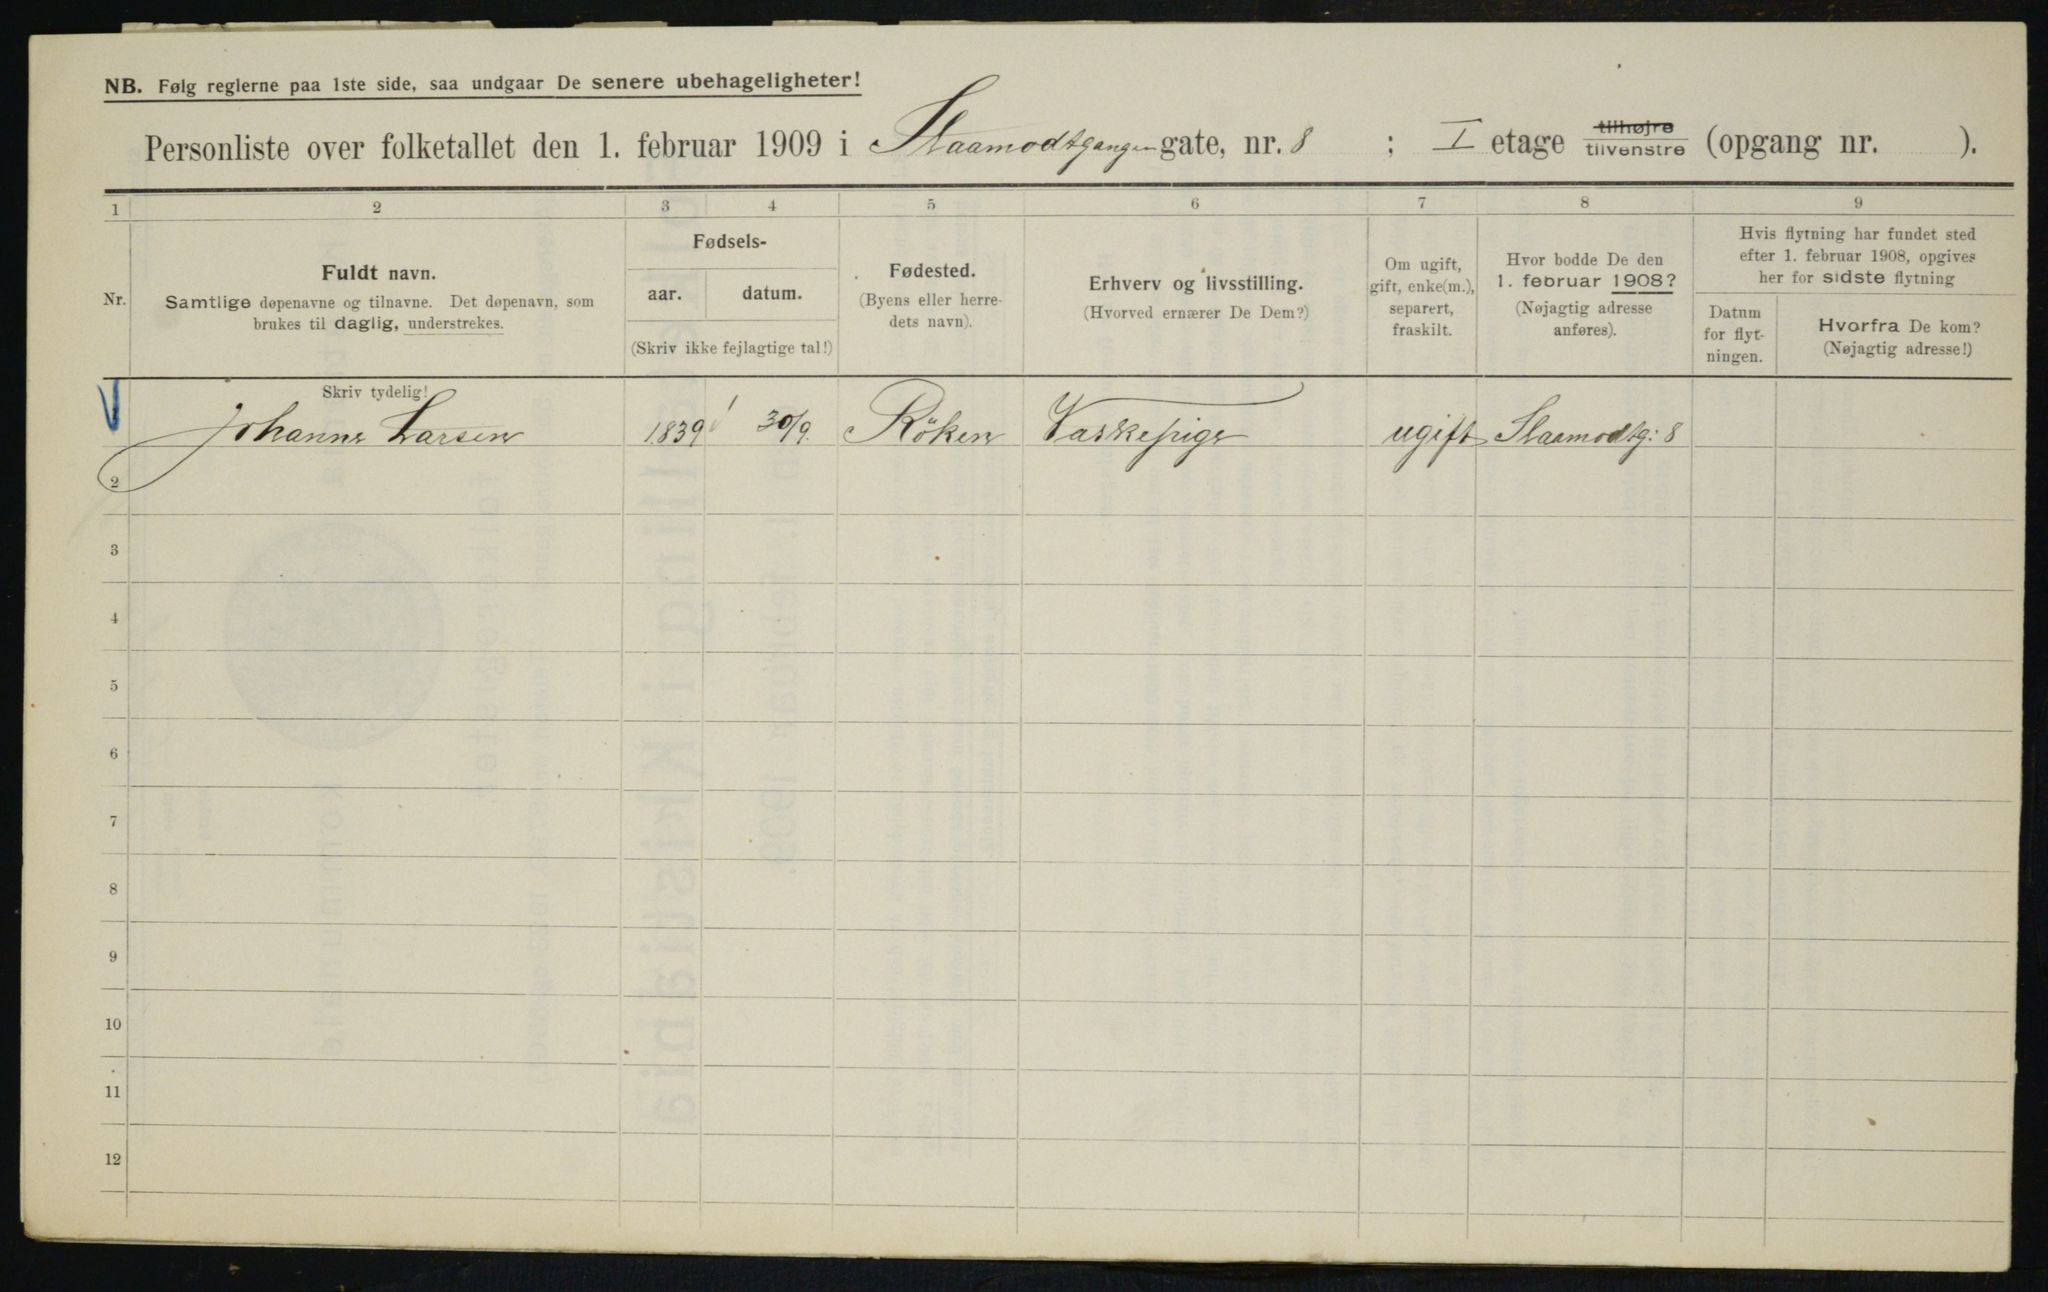 NB. Følg reglerne paa 1ste side, saa undgaar De senere ubehageligheter!
Personliste over folketallet den 1. februar 1909 i Slaamodtgangen gate, nr. 8 ; I etage tilhøjre tilvenstre (opgang nr. ).
1 2 3 4 5 6 7 8 9
Nr.
Fuldt navn.
Samtlige døpenavne og tilnavne. Det døpenavn, som
brukes til daglig, understrekes.
Fødsels-
aar. datum.
(Skriv ikke fejlagtige tal!)
Fødested.
(Byens eller herre-
dets navn).
Erhverv og livsstilling.
(Hvorved ernærer De Dem?)
Om ugift,
gift, enke(m.),
separert,
fraskilt.
Hvor bodde De den
1. februar 1908?
(Nøjagtig adresse
anføres).
Hvis flytning har fundet sted
efter 1. februar 1908, opgives
her for sidste flytning
Datum
for flyt-
ningen.
Hvorfra De kom?
(Nøjagtig adresse!)
Skriv tydelig!
Johanne Larsen 1839 30/9. Röken Vaskepige ugift Slaamodtg: 8
2
3
4
5
6
7
8
9
10
11
12